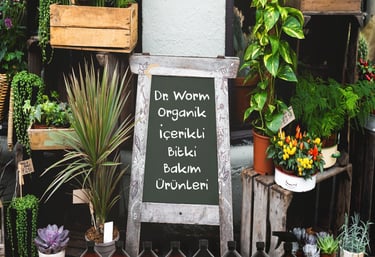 Dr. Worm
Organik
İçerikli
Bitki
Bakım
Ürünleri